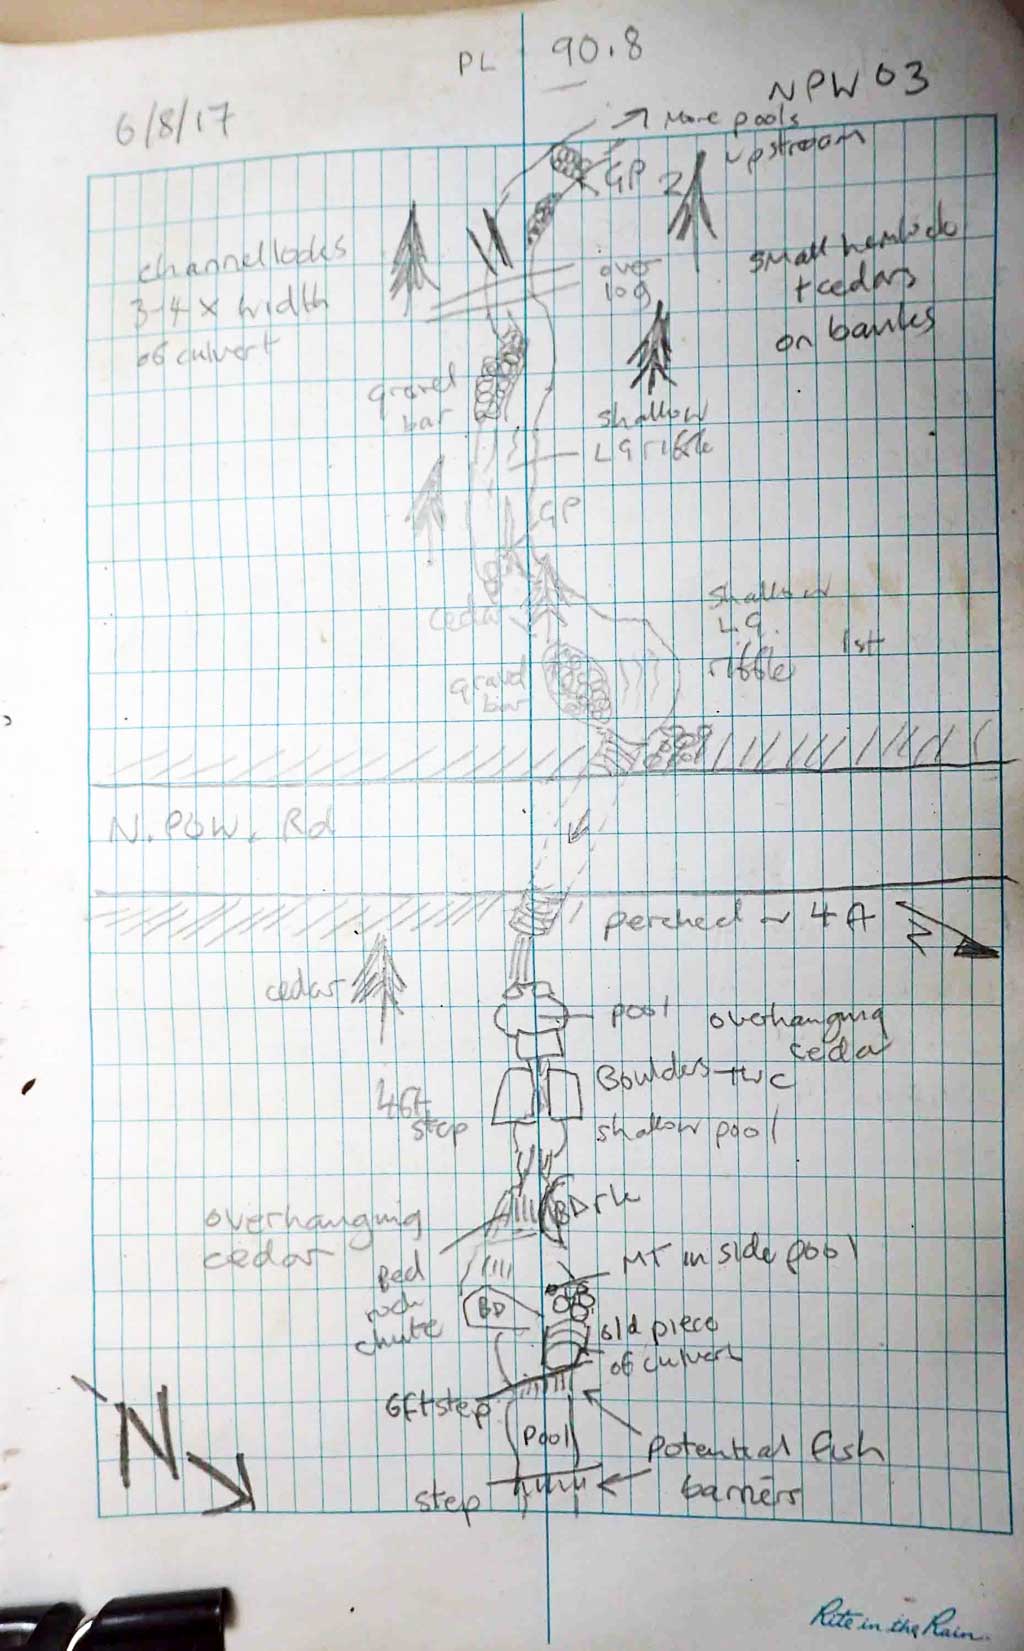 PL 90.8
NPW 03
6/8/17
More pools
upstream
GP 2
channel looks
3-4 x width
of culvert
over
log
small hemlock
+ cedars
on banks
gravel
bar
shallow
LG riffle
GP
cedar
shallow
LG
riffle 1st
gravel
bar
N. POW. Rd
perched ~ 4 ft
N
cedar
pool
overhanging
cedar
Boulders
4ft
step
shallow pool
overhanging
cedar
BDrk
MT in side pool
Bed
rock
chute
BD
old piece
of culvert
6ft step
Pool
Potential fish
barriers
step
N
Rite in the Rain